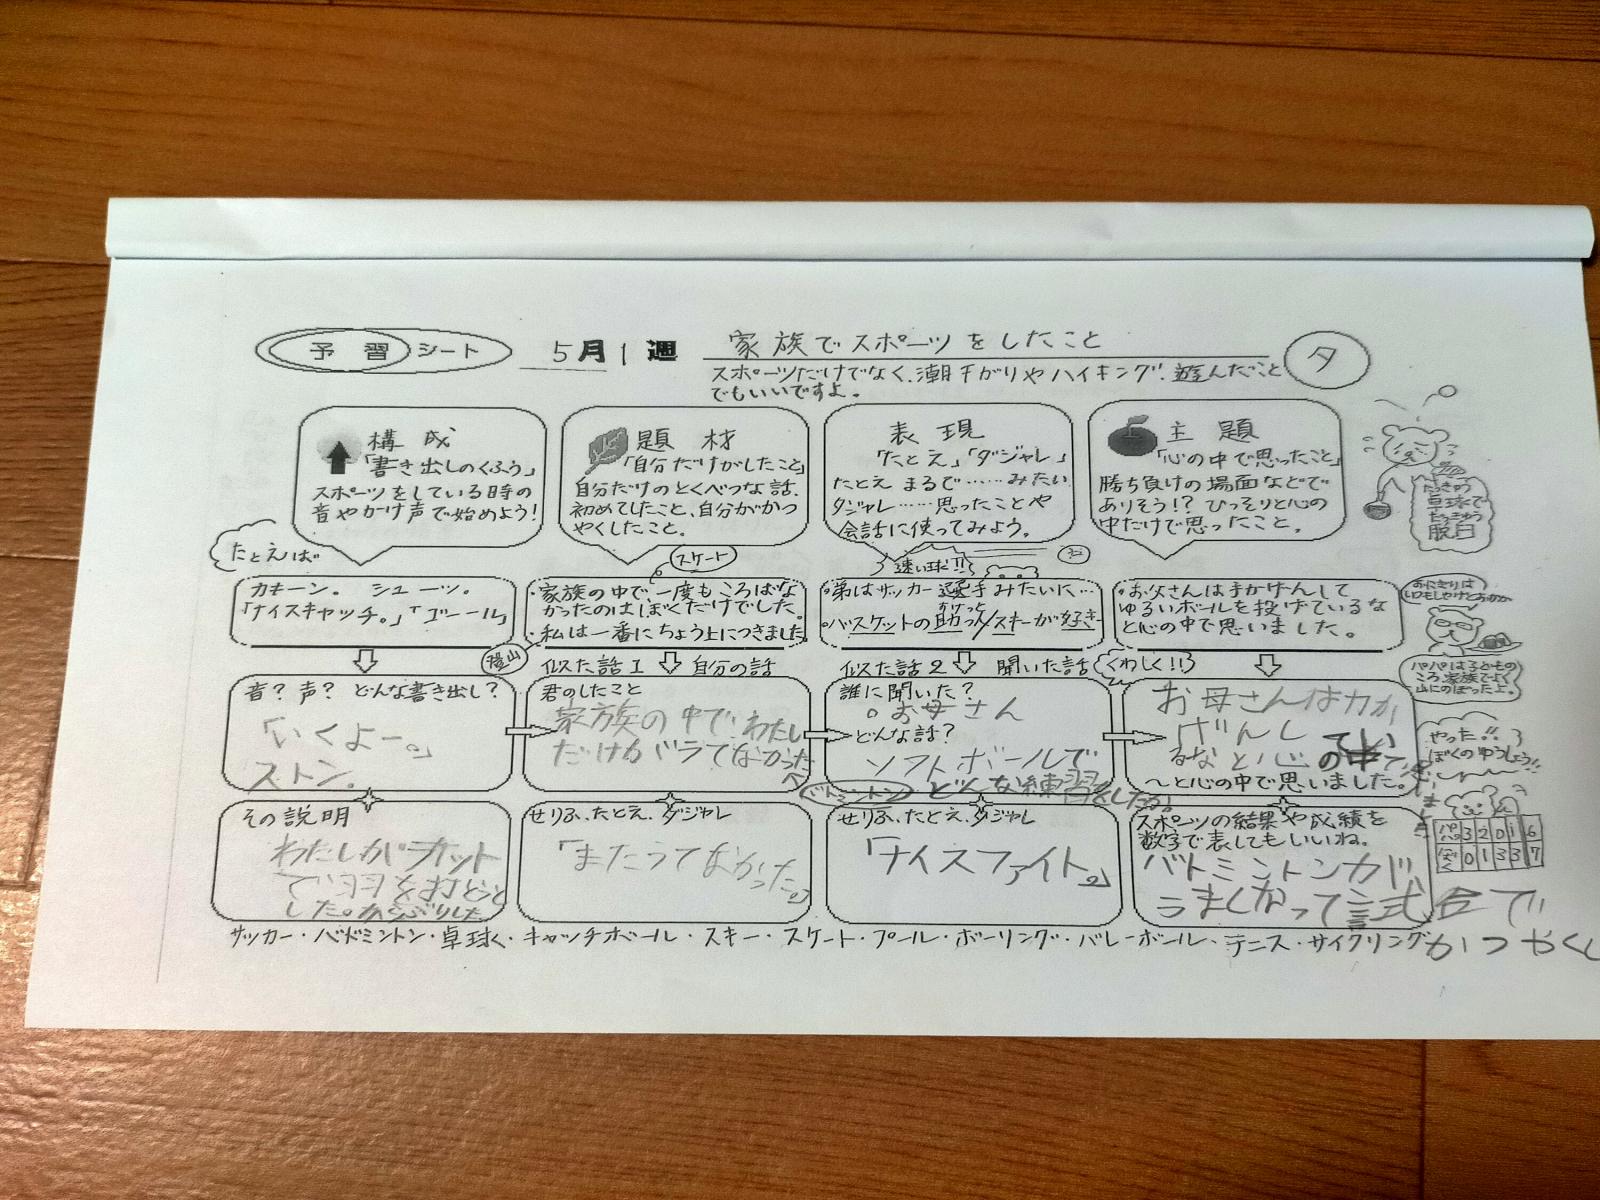 予習シート 5月1週 家族でスポーツをしたこと 夕
スポーツだけでなく、潮干がりやハイキング、遊んだこと
でもいいですよ。
構成
「書き出しのくふう」
スポーツをしている時の
音やかけ声で始めよう!
題材
「自分だけがしたこと」
自分だけのとくべつな話、
初めてしたこと、自分がかつ
やくしたこと。
表現
「たとえ」「ダジャレ」
たとえ まるで……みたい
ダジャレ……思ったことや
会話に使ってみよう。
主題
「心の中で思ったこと」
勝ち負けの場面などで
ありそう!?ひっそりと心の
中だけで思ったこと。
卓球で
脱臼
たとえば
カキーン。 シューッ。
「ナイスキャッチ。」「ゴーール」
スケート
・家族の中で一度もころばな
かったのはぼくだけでした。
・私は一番にちょう上につきました。
登山
速い球!!
・弟はサッカー選手みたいに…
・バスケットの助っ人/スキーが好きー
・お父さんは手かげんして
ゆるいボールを投げているな
と心の中で思いました。
おにぎりは
パパは子どもの
ころ家族でよく
山にのぼったよ。
音?声? どんな書き出し?
「いくよー。」
ストン。
似た話1 自分の話
君のしたこと
家族の中で、わたし
だけがラてなかった
似た話2 聞いた話
誰に聞いた?
。お母さん
どんな話?
ソフトボールで
どんな練習をしたか。
バトミントン
くわしく!!
お母さんは力か
げんし
てい
るなと心の中で
～と心の中で思いました。
やった!!
ぼくのゆうしょう!!
その説明
わたしがラケット
で羽を打とうと
した。からぶりした
せりふ、たとえ、ダジャレ
「またうてなかった。」
せりふ、たとえ、ダジャレ
「ナイスファイト。」
スポーツの結果や成績を
数字で表してもいいね。
バトミントンが
うまくなって試合で
かつやくし
パパ 3 2 0 1 6
ぼく 0 1 3 3 7
サッカー・バドミントン・卓球・キャッチボール・スキー・スケート・プール・ボーリング・バレーボール・テニス・サイクリング